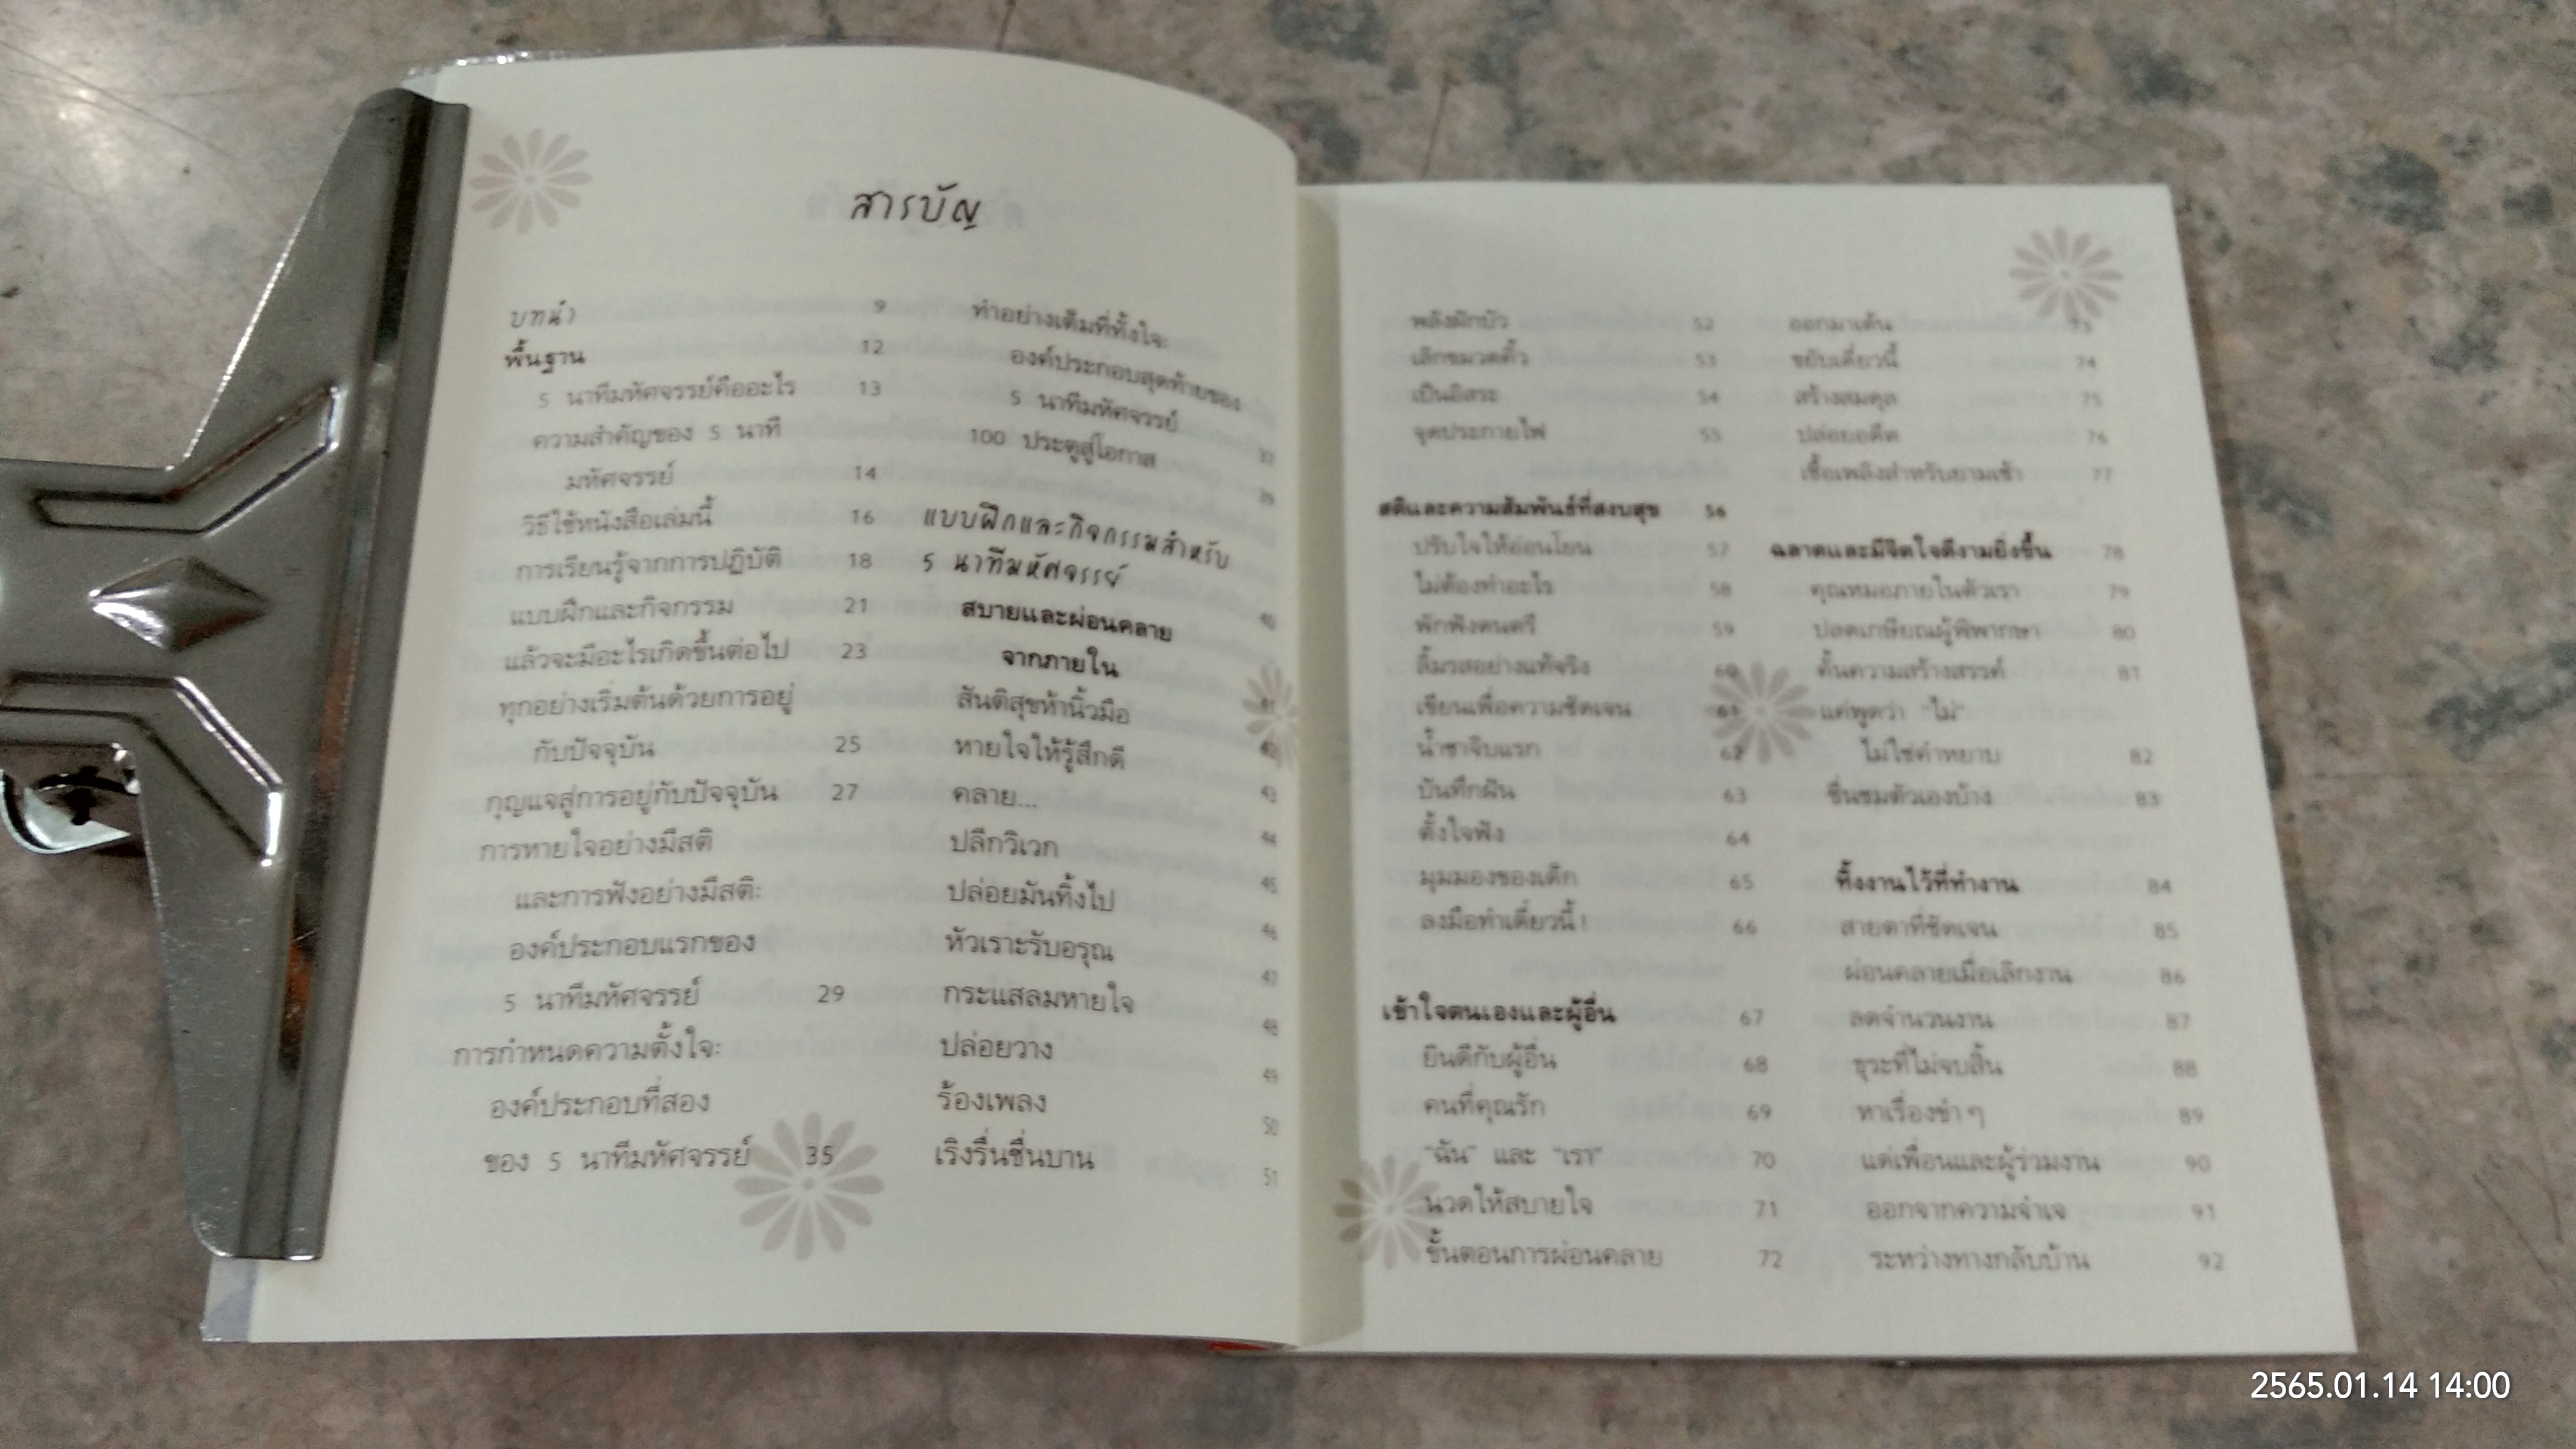 สารบัญ
บทนำ 9
พื้นฐาน 12
5 นาทีมหัศจรรย์คืออะไร 13
ความสำคัญของ 5 นาที
มหัศจรรย์ 14
วิธีใช้หนังสือเล่มนี้ 16
การเรียนรู้จากการปฏิบัติ 18
แบบฝึกและกิจกรรม 21
แล้วจะมีอะไรเกิดขึ้นต่อไป 23
ทุกอย่างเริ่มต้นด้วยการอยู่
กับปัจจุบัน 25
กุญแจสู่การอยู่กับปัจจุบัน 27
การหายใจอย่างมีสติ
และการฟังอย่างมีสติ:
องค์ประกอบแรกของ
5 นาทีมหัศจรรย์ 29
การกำหนดความตั้งใจ:
องค์ประกอบที่สอง
ของ 5 นาทีมหัศจรรย์ 35
ทำอย่างเต็มที่ทั้งใจ:
องค์ประกอบสุดท้ายของ
5 นาทีมหัศจรรย์ 37
100 ประตูสู่โอกาส 39
แบบฝึกและกิจกรรมสำหรับ
5 นาทีมหัศจรรย์
สบายและผ่อนคลาย 40
จากภายใน
สันติสุขห้านิ้วมือ 41
หายใจให้รู้สึกดี 42
คลาย... 43
ปลีกวิเวก 44
ปล่อยมันทิ้งไป 45
หัวเราะรับอรุณ 46
กระแสลมหายใจ 47
ปล่อยวาง 48
ร้องเพลง 49
เริงรื่นชื่นบาน 50
51
พลังฝักบัว 52
เลิกขมวดคิ้ว 53
เป็นอิสระ 54
จุดประกายไฟ 55
สติและความสัมพันธ์ที่สงบสุข 56
ปรับใจให้อ่อนโยน 57
ไม่ต้องทำอะไร 58
พักฟังดนตรี 59
ลิ้มรสอย่างแท้จริง 60
เขียนเพื่อความชัดเจน 61
น้ำชาจิบแรก 62
บันทึกฝัน 63
ตั้งใจฟัง 64
มุมมองของเด็ก 65
ลงมือทำเดี๋ยวนี้! 66
เข้าใจตนเองและผู้อื่น 67
ยินดีกับผู้อื่น 68
คนที่คุณรัก 69
"ฉัน" และ "เรา" 70
นวดให้สบายใจ 71
ขั้นตอนการผ่อนคลาย 72
ออกมาเต้น 73
ขยับเดี๋ยวนี้ 74
สร้างสมดุล 75
ปล่อยอดีต 76
เชื้อเพลิงสำหรับยามเช้า 77
ฉลาดและมีจิตใจดีงามยิ่งขึ้น 78
คุณหมอภายในตัวเรา 79
ปลดเกษียณผู้พิพากษา 80
ดั้นความสร้างสรรค์ 81
แค่พูดว่า "ไม่"
ไม่ใช่คำหยาบ 82
ชื่นชมตัวเองบ้าง 83
ทิ้งงานไว้ที่ทำงาน 84
สายตาที่ชัดเจน 85
ผ่อนคลายเมื่อเลิกงาน 86
ลดจำนวนงาน 87
ธุระที่ไม่จบสิ้น 88
หาเรื่องขำๆ 89
แด่เพื่อนและผู้ร่วมงาน 90
ออกจากความจำเจ 91
ระหว่างทางกลับบ้าน 92
2565.01.14 14:00